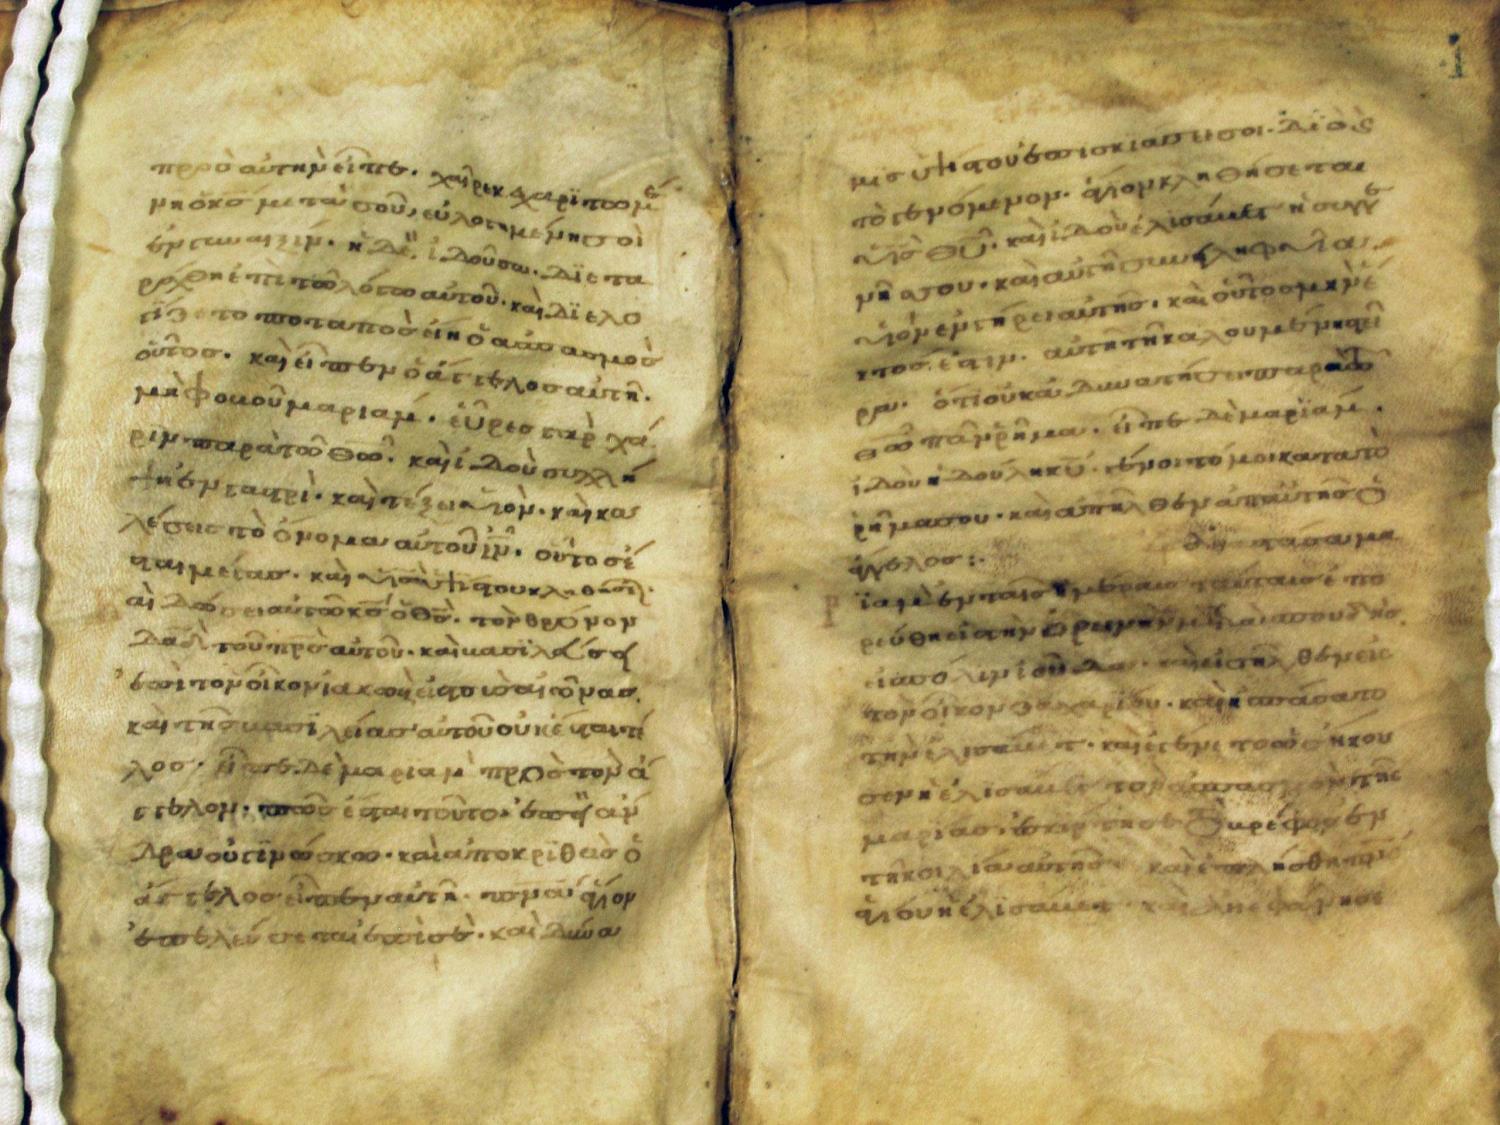 πρὸσ αὐτὴν εἶπε. χαῖρε κεχαριτωμέ
νη ὁ κσ μετὰ σοῦ, εὐλογημένη σοὶ
ἐν γυναιξίν. ἡ δὲ ἰδοῦσα. διετα
ράχθη ἐπὶ τῶ λόγω αὐτοῦ. καὶ διελο
γίζετο ποταπὸσ εἴη ὁ ἀσπασμοσ
οὗτοσ. καὶ εἶπεν ὁ ἄγγελοσ αὐτῆ.
μὴ φοβοῦ μαριάμ. εὗρεσ γὰρ χά
ριν παρὰ τῶ θῶ. καὶ ἰδοὺ συλλή
ψη ἐν γαστρὶ. καὶ τέξει υἱὸν. καὶ κα
λέσεισ τὸ ὄνομα αὐτοῦ ιν. οὗτοσ ἔ
σται μέγασ. καὶ υἱσ ὑψίστου κληθήσεται.
καὶ δώσει αὐτῶ κσ ὁ θσ. τὸν θρόνον
δαδ τοῦ πρσ αὐτοῦ. καὶ βασιλεύσει
ἐπὶ τὸν οἶκον ἰακὼβ εἰσ τοὺσ αἰῶνασ.
καὶ τῆσ βασιλείασ αὐτοῦ οὐκ ἔσται τέ
λοσ. εἶπε δὲ μαριαμ πρὸσ τὸν ἄγ
γελον. πῶσ ἔσται τοῦτο. ἐπεὶ ἄν
δρα οὐ γινώσκω. καὶ ἀποκριθεὶσ ὁ
ἄγγελοσ εἶπεν αὐτῆ. πνα ἅγιον
ἐπελεύσεται ἐπὶ σέ. καὶ δύνα
μισ ὑψίστου ἐπισκιάσει σοι. διὸ
τὸ γεννόμενον. ἅγιον κληθήσεται
υἱσ θυ. καὶ ἰδοὺ ἐλισάβετ ἡ συγγε
νή σου. καὶ αὐτὴ συνειληφυῖα
υἱὸν ἐν γήρει αὐτῆσ. καὶ οὗτοσ μὴν ἕ
κτοσ ἐστιν. αὐτῆ τῆ καλουμένη στεῖ
ρα. ὅτι οὐκ ἀδυνατήσει παρὰ τῶ
θῶ πᾶν ῥῆμα. εἶπε δὲ μαριάμ.
ἰδοὺ ἡ δούλη κυ. γένοιτό μοι κατὰ τὸ
ῥῆμα σου. καὶ ἀπῆλθεν ἀπ' αὐτῆσ ὁ
ἄγγελοσ:.
ἐν ταῖσ ἡμέραισ ταύταισ ἐπο
ρεύθη εἰσ τὴν ὀρεινὴν μετὰ σπουδῆσ
εἰσ πόλιν ἰούδα. καὶ εἰσῆλθεν εἰσ
τὸν οἶκον ζαχαρίου. καὶ ἠσπάσατο
τὴν ἐλισάβετ. καὶ ἐγένετο ὡσ ἤκου
σεν ἡ ἐλισάβετ τὸν ἀσπασμὸν τῆσ
μαρίασ. ἐσκίρτησε τὸ βρέφοσ ἐν
τῆ κοιλία αὐτῆσ. καὶ ἐπλήσθη πνσ
ἁγίου ἡ ἐλισάβετ. καὶ ἀνεφώνησε